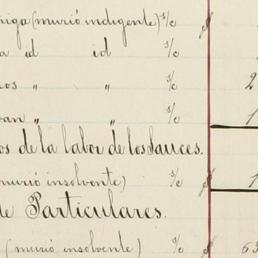 niga (murió indigente) s/c $
a id id s/c
os " " s/c 2
van " " s/c 1
os de la labor de los Sauces.
murió insolvente) s/c $ 1
de Particulares.
(murió insolvente) s/c $ 63